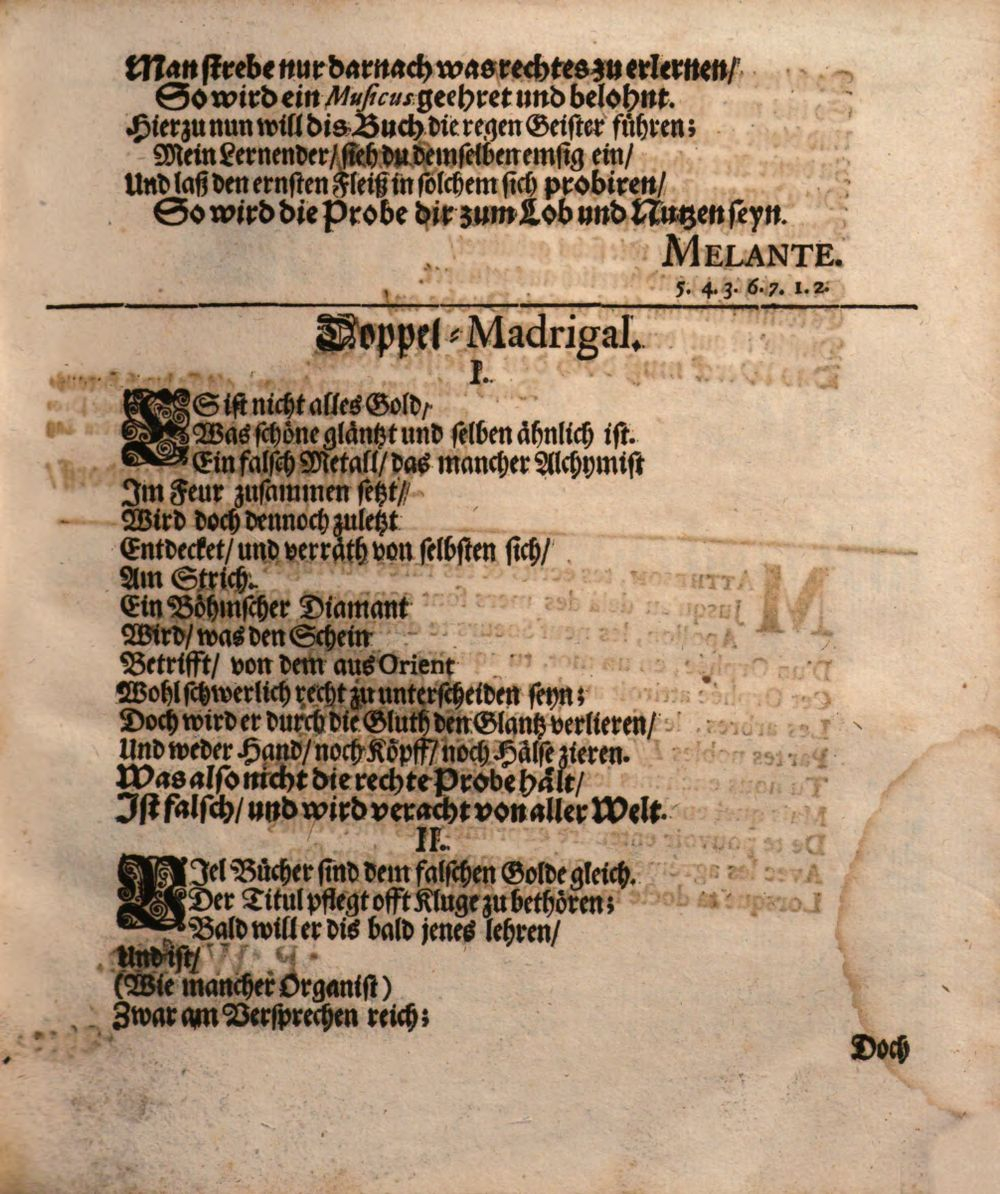 Man strebe nur darnach was rechtes zu erlernen/
So wird ein Musicus geehret und belohnt.
Hierzu nun will dis Buch die regen Geister führen;
Mein Lernender/ sieh du demselben emsig ein/
Und laß den ernsten Fleiß in solchem sich probiren/
So wird die Probe dir zum Lob und Nutzen seyn.
MELANTE.
5. 4. 3. 6. 7. 1. 2.
Doppel-Madrigal.
I.
ES ist nicht alles Gold/
Was schöne gläntzt und selben ähnlich ist.
Ein falsch Metall/ das mancher Alchymist
Im Feur zusammen setzt/
Wird doch dennoch zuletzt
Entdecket/ und verräth von selbsten sich/
Am Strich.
Ein Böhmscher Diamant
Wird/ was den Schein
Betrifft/ von dem aus Orient
Wohl schwerlich recht zu unterscheiden seyn;
Doch wird er durch die Gluth den Glantz verlieren/
Und weder Hand/ noch Köpff/ noch Hälse zieren.
Was also nicht die rechte Probe hält/
Ist falsch/ und wird veracht von aller Welt.
II.
VIel Bücher sind dem falschen Golde gleich.
Der Titul pflegt offt Kluge zu bethören;
Bald will er dis bald jenes lehren/
Und ist/
(Wie mancher Organist)
Zwar am Versprechen reich;
Doch